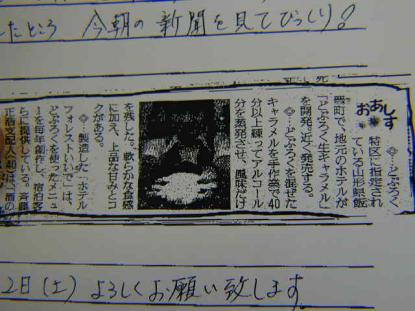 したところ 今朝の新聞を見てびっくり!
おあしす
◇…どぶろく
特区に指定され
ている山形県飯
豊町で、地元のホテルが
「どぶろく生キャラメル」
を開発。近く発売する。
◇…どぶろくを混ぜた
キャラメルを手作業で40
分以上練ってアルコール
分を蒸発させ、風味だけ
を残した。軟らかな食感
に加え、上品な甘みとコ
クがある。
◇…製造した「ホテル
フォレストいいで」は、
どぶろくを使ったメニュ
ーを毎年創作し、宿泊客
らに提供している。斉藤
2日(土) よろしくお願い致します。